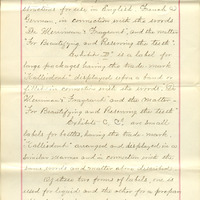 directions for use in English, French &
German, in connection with the words
"Dr. Hermann's Fragrant", and the matter
"For Beautifying and Preserving the Teeth".
Exhibit "B" is a label for
large packages having the trade mark
"Kalliodont" displayed upon a band or
fillet in connection with the words, "Dr.
Hermann's Fragrant" and the matter -
"For Beautifying and Preserving the Teeth"
Exhibits "C, C" are small
labels for bottles, having the trade-mark
"Kalliodont" arranged and displayed in a
similar manner and in connection with the
same words and matter above described.
Of these two forms of bottle, one is
used for liquid and the other for a powder